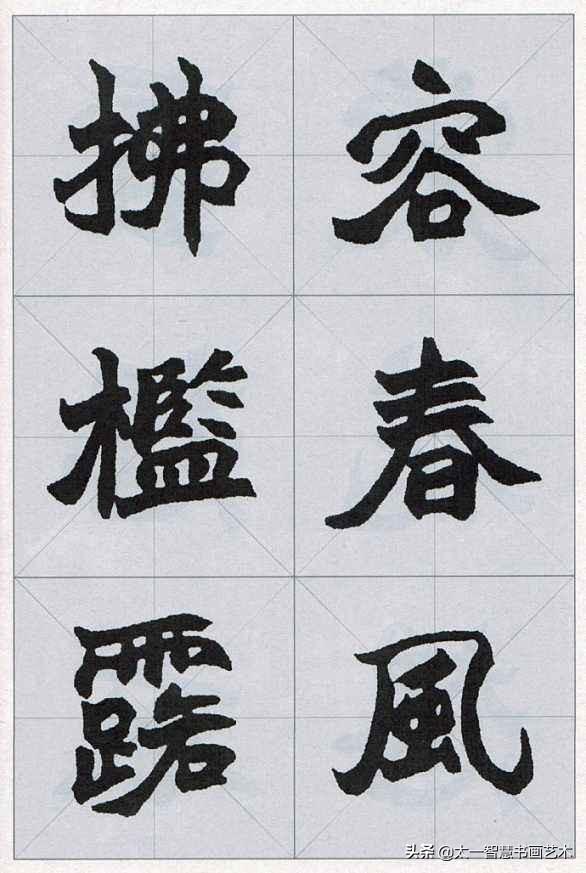 容春風
拂檻露
头条 @太一智慧书画艺术